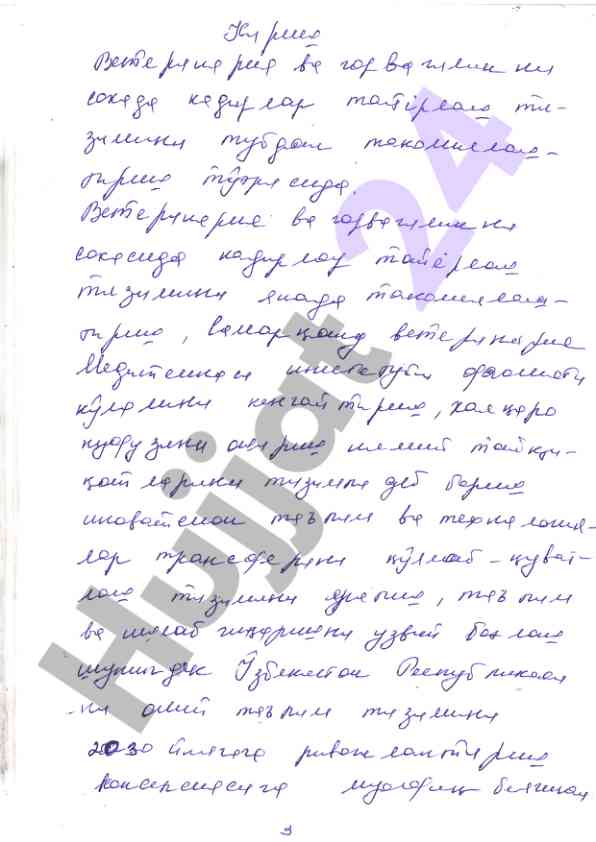 Кириш
Ветеринария ва чорвачиликни
соҳада кадрлар тайёрлаш ти-
зимини тубдан такомиллаш-
тириш тўғрисида.
Ветеринария ва чорвачилик
соҳасида кадрлар тайёрлаш
тизимини янада такомиллаш-
тириш, Самарқанд ветеринария
Медитсинаси институти фаолияти
кўламини кенгайтириш, халқаро
нуфузини ошириш илмий тадқи-
қотларини тизимли олиб бориш
иноватсион таълим ва технология-
лар трансферини қўллаб-қувват-
лаш тизимини яратиш, таълим
ва ишлаб чиқаришни узвий боғлаш
шунингдек Ўзбекистон Республикаси
ни олий таълим тизимини
2030 йилгача ривожлантириш
консепсиясига мувофиқ билишни
3
Hujjat 24